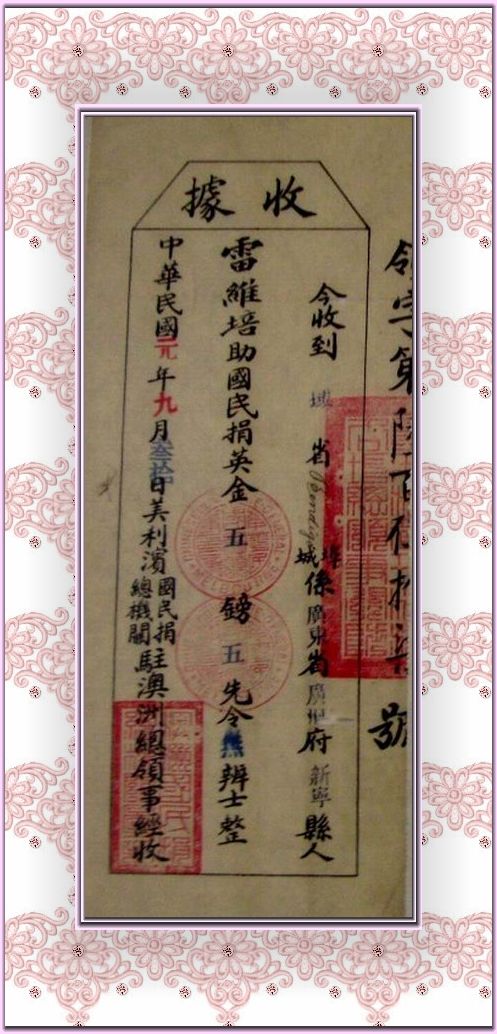 收據
今收到 域 省 Bendigo 埠城 係 廣東省 廣州府 新寧縣人
雷維培助國民捐英金 五 鎊 五 先令 無 辨士整
中華民國元年九月叁拾日美利濱國民捐總機關駐澳洲總領事經收
號